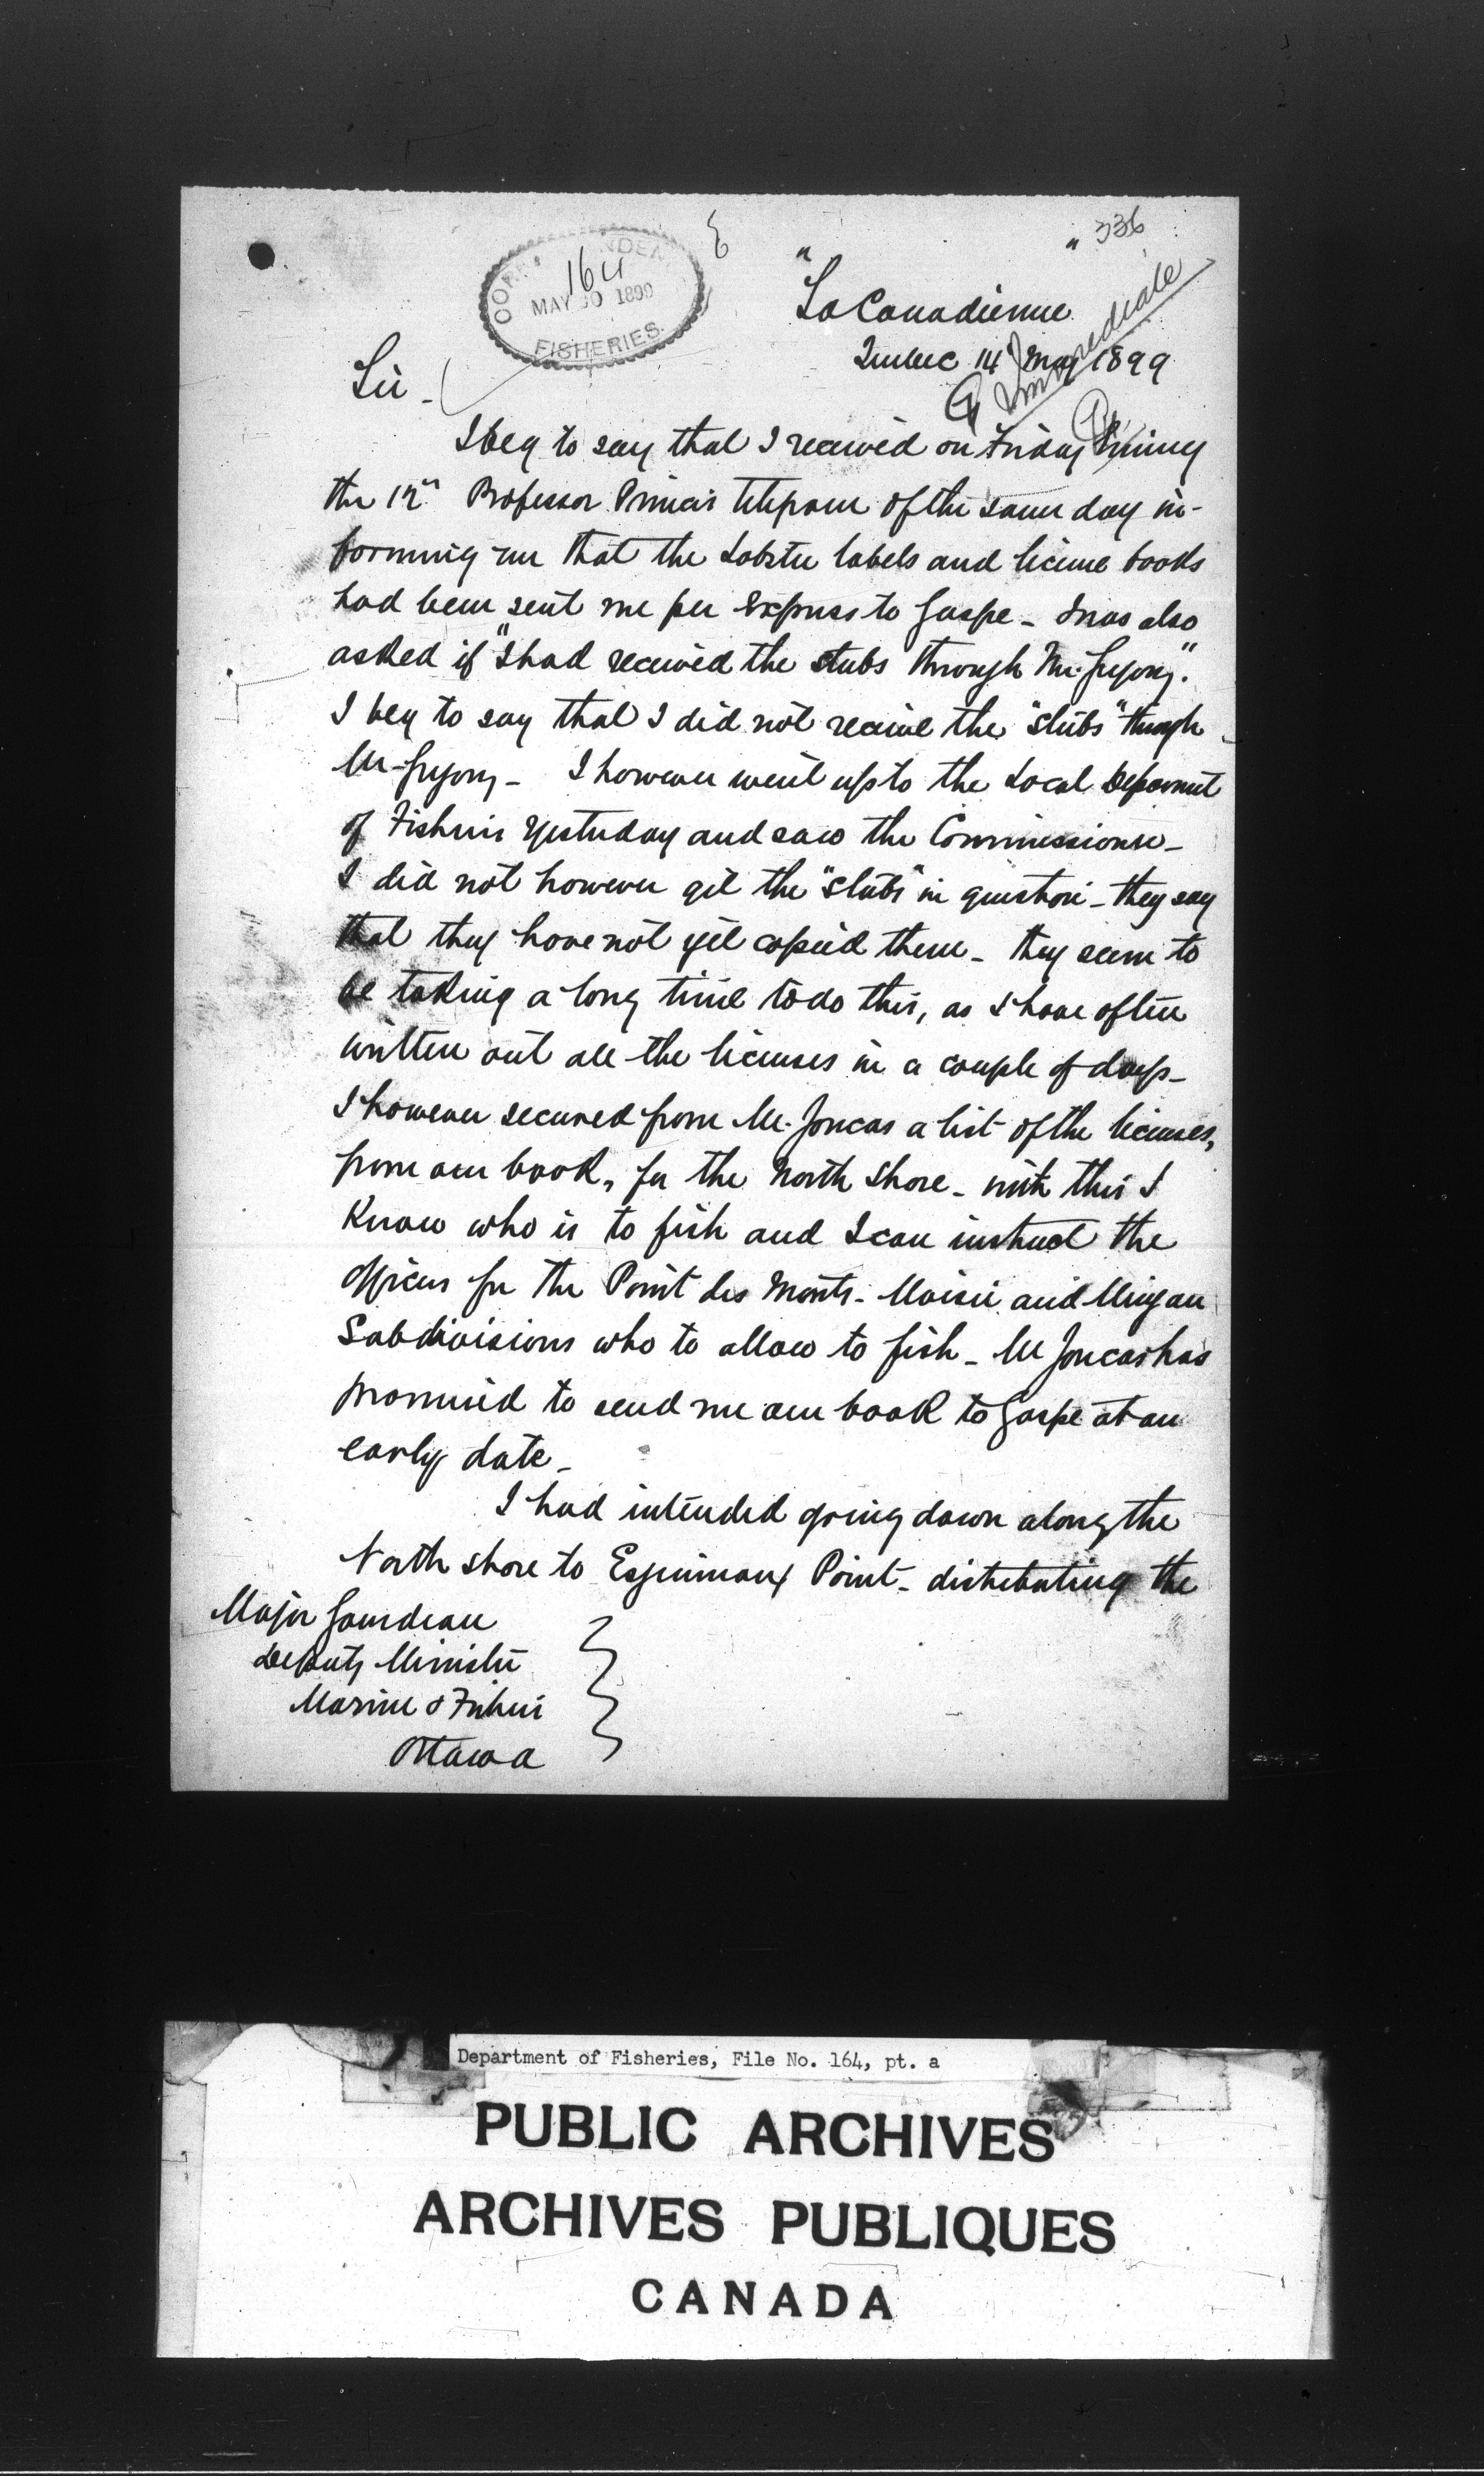 336
CORRESPONDENCE
164
MAY 30 1899
FISHERIES.
"La Canadienne"
Quebec 14 May 1899
Immediate
Sir -
I beg to say that I received on Friday Evening
the 12th Professor Prince's telegram of the same day in-
forming me that the Lobster labels and license books
had been sent me per Express to Gaspe - I was also
asked if "I had received the stubs through Mr. Gregory."
I beg to say that I did not receive the "stubs" through
Mr. Gregory - I however went up to the Local Department
of Fisheries yesterday and saw the Commissioner -
I did not however get the "stubs" in question - they say
that they have not yet copied them - they seem to
be taking a long time to do this, as I have often
written out all the licenses in a couple of days -
I however secured from Mr. Joncas a list of the licenses,
from our book, for the North Shore - with this I
know who is to fish and I can instruct the
officers for the Point des Monts - Moisie and Mingan
Subdivisions who to allow to fish - Mr Joncas has
promised to send me our book to Gaspe at an
early date -
I had intended going down along the
North shore to Esquimaux Point - distributing the
Major Gourdeau
Deputy Minister
Marine & Fisheries
Ottawa
Department of Fisheries, File No. 164, pt. a
PUBLIC ARCHIVES
ARCHIVES PUBLIQUES
CANADA